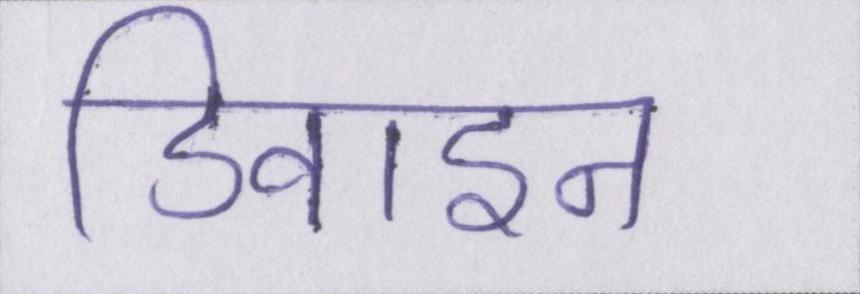 डिवाइन